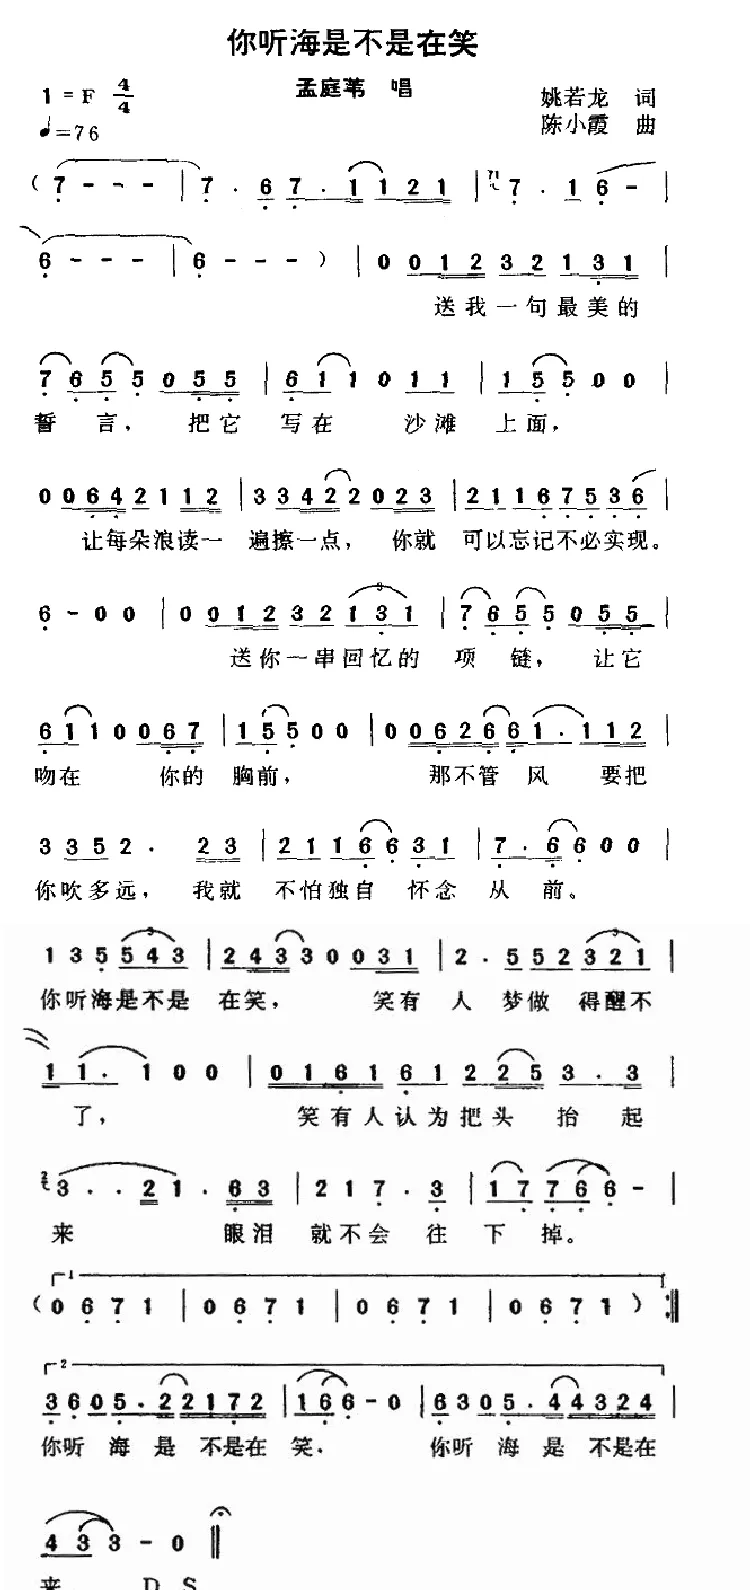 你听海是不是在笑
1 = F 4/4 孟庭苇 唱 姚若龙 词
♩=76 陈小霞 曲
( 7 - - - | 7 . 6 7 . 1 1 2 1 | 7 . 1 6 - |
6 - - - | 6 - - - ) | 0 0 1 2 3 2 1 3 1 |
送我一句最美的
7 6 5 5 0 5 5 | 6 1 1 0 1 1 | 1 5 5 0 0 |
誓言, 把它 写在 沙滩 上面,
0 0 6 4 2 1 1 2 | 3 3 4 2 2 0 2 3 | 2 1 1 6 7 5 3 6 |
让每朵浪读一 遍擦一点, 你就 可以忘记不必实现。
6 - 0 0 | 0 0 1 2 3 2 1 3 1 | 7 6 5 5 0 5 5 |
3
送你一串回忆的 项 链, 让它
6 1 1 0 0 6 7 | 1 5 5 0 0 | 0 0 6 2 6 6 1 . 1 1 2 |
吻在 你的 胸前, 那不管 风 要把
3 3 5 2 . 2 3 | 2 1 1 6 6 3 1 | 7 . 6 6 0 0 |
你吹多远, 我就 不怕独自 怀念 从 前。
1 3 5 5 4 3 | 2 4 3 3 0 0 3 1 | 2 . 5 5 2 3 2 1 |
3 3
你听海是不是 在笑, 笑有 人 梦做 得醒不
1 1 . 1 0 0 | 0 1 6 1 6 1 2 2 5 3 . 3 |
了, 笑有人认为把头 抬 起
2 3 . . 2 1 . 6 3 | 2 1 7 . 3 | 1 7 7 6 6 - |
来 眼泪 就不会 往 下 掉。
1
( 0 6 7 1 | 0 6 7 1 | 0 6 7 1 | 0 6 7 1 ) :‖
2
3 6 0 5 . 2 2 1 7 2 | 1 6 6 - 0 | 6 3 0 5 . 4 4 3 2 4 |
你听 海 是 不是在 笑、 你听 海 是 不是在
4 3 3 - 0 ‖
来 D S